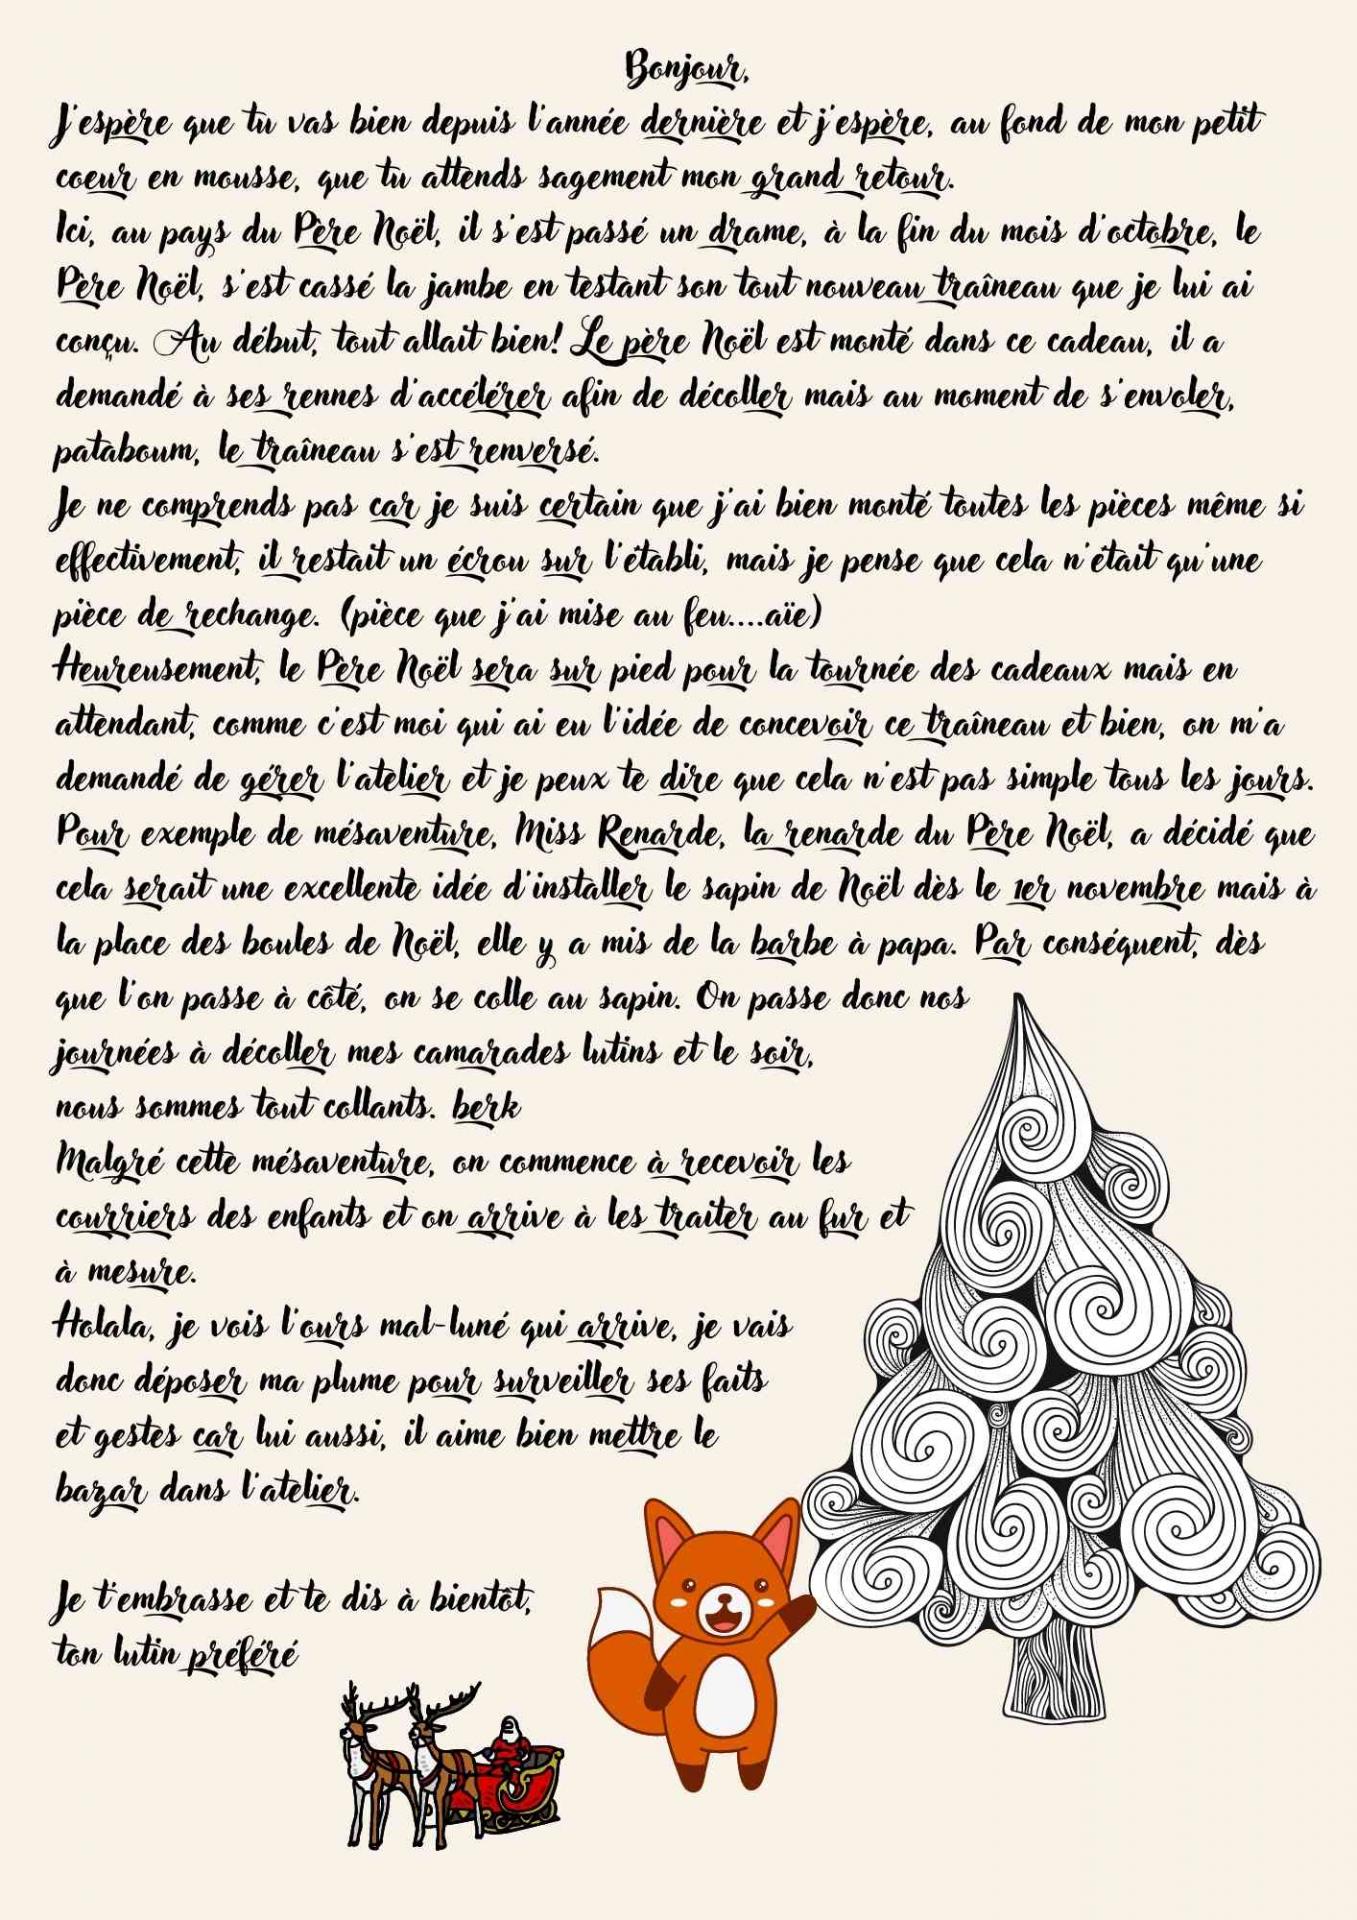 Bonjour,
J'espère que tu vas bien depuis l'année dernière et j'espère, au fond de mon petit
coeur en mousse, que tu attends sagement mon grand retour.
Ici, au pays du Père Noël, il s'est passé un drame, à la fin du mois d'octobre, le
Père Noël, s'est cassé la jambe en testant son tout nouveau traîneau que je lui ai
conçu. Au début, tout allait bien! Le père Noël est monté dans ce cadeau, il a
demandé à ses rennes d'accélérer afin de décoller mais au moment de s'envoler,
pataboum, le traîneau s'est renversé.
Je ne comprends pas car je suis certain que j'ai bien monté toutes les pièces même si
effectivement, il restait un écrou sur l'établi, mais je pense que cela n'était qu'une
pièce de rechange. (pièce que j'ai mise au feu....aïe)
Heureusement, le Père Noël sera sur pied pour la tournée des cadeaux mais en
attendant, comme c'est moi qui ai eu l'idée de concevoir ce traîneau et bien, on m'a
demandé de gérer l'atelier et je peux te dire que cela n'est pas simple tous les jours.
Pour exemple de mésaventure, Miss Renarde, la renarde du Père Noël, a décidé que
cela serait une excellente idée d'installer le sapin de Noël dès le 1er novembre mais à
la place des boules de Noël, elle y a mis de la barbe à papa. Par conséquent, dès
que l'on passe à côté, on se colle au sapin. On passe donc nos
journées à décoller mes camarades lutins et le soir,
nous sommes tout collants. berk
Malgré cette mésaventure, on commence à recevoir les
courriers des enfants et on arrive à les traiter au fur et
à mesure.
Holala, je vois l'ours mal-luné qui arrive, je vais
donc déposer ma plume pour surveiller ses faits
et gestes car lui aussi, il aime bien mettre le
bazar dans l'atelier.
Je t'embrasse et te dis à bientôt,
ton lutin préféré